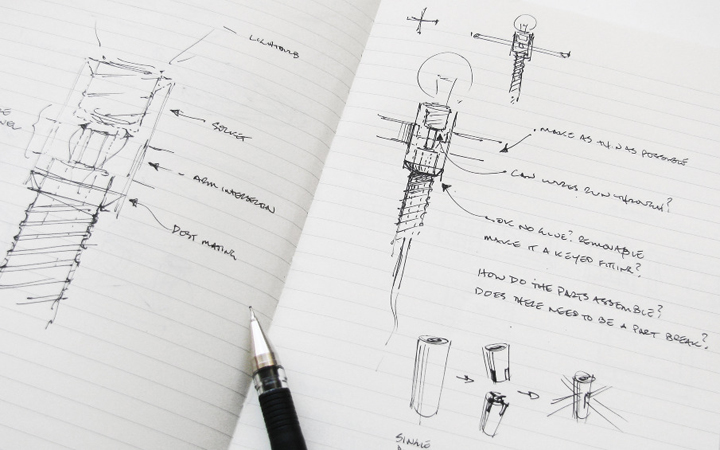 SOCKET
ARM INTERSECTION
POST MATING
MAKE AS THIN AS POSSIBLE
CAN WIRES RUN THROUGH?
NO GLUE? REMOVABLE
MAKE IT A KEYED FITTING?
HOW DO THE PARTS ASSEMBLE?
DOES THERE NEED TO BE A PART BREAK?
SINGLE